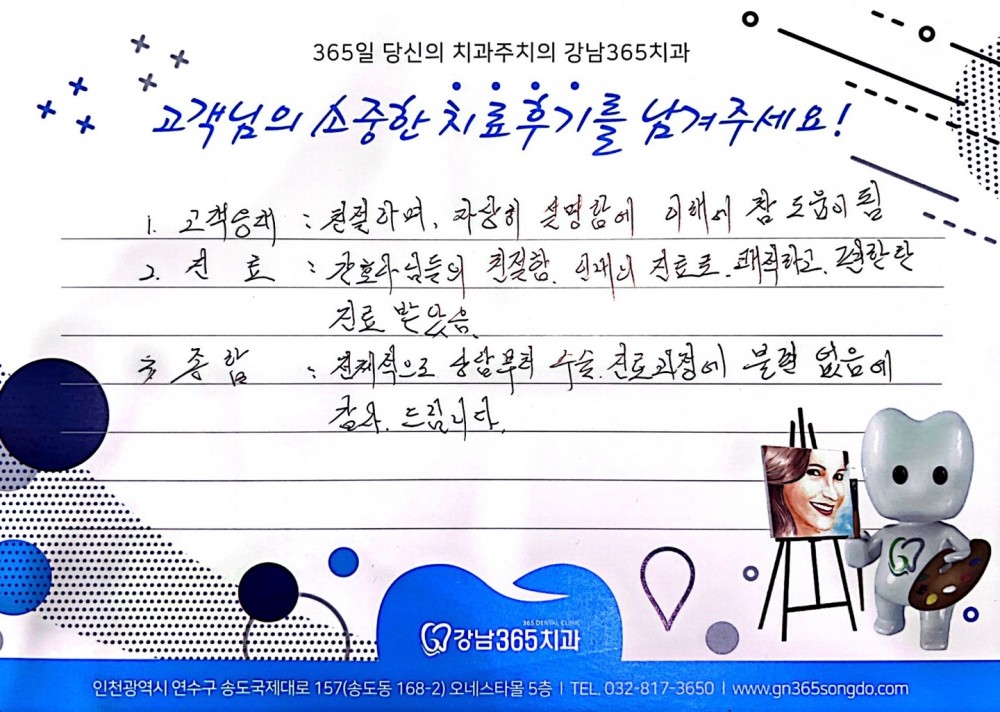 365일 당신의 치과주치의 강남365치과
고객님의 소중한 치료후기를 남겨주세요!
1. 고객응대 : 친절하며, 자상히 설명함에 이해에 참 도움이 됨
2. 진료 : 간호사님들의 친절함, 의 진료로, 쾌적하고, 편한
진료 받았음.
3. 종합 : 전체적으로 상담부터 수술, 진료과정에 불편 없음에
감사, 드립니다.
365 DENTAL CLINIC
강남365치과
인천광역시 연수구 송도국제대로 157(송도동 168-2) 오네스타몰 5층 | TEL. 032-817-3650 | www.gn365songdo.com